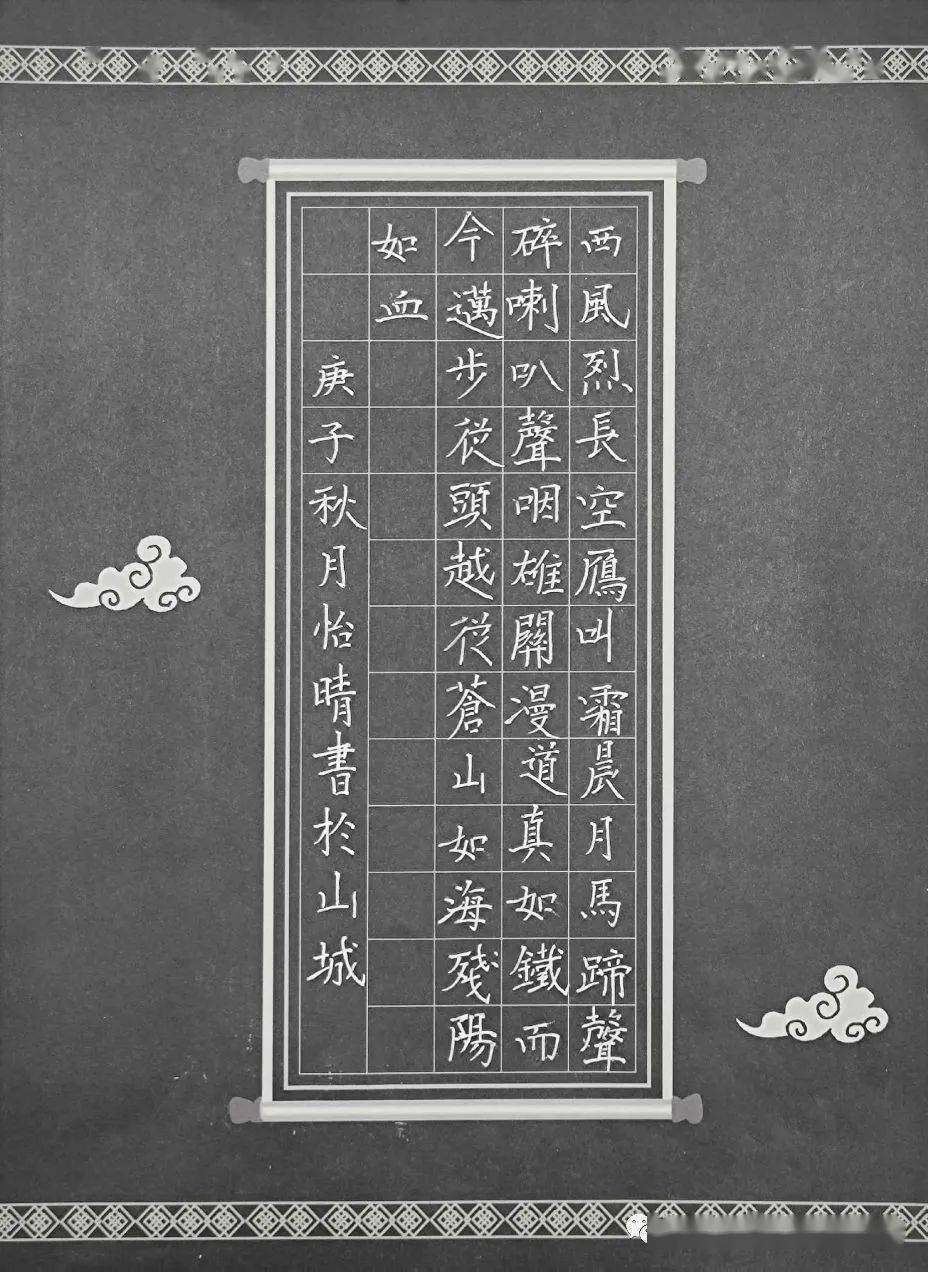 西風烈長空鴈叫霜晨月馬蹄聲
碎喇叭聲咽雄關漫道真如鐵而
今邁步從頭越從蒼山如海殘陽
如血
庚子秋月怡晴書於山城